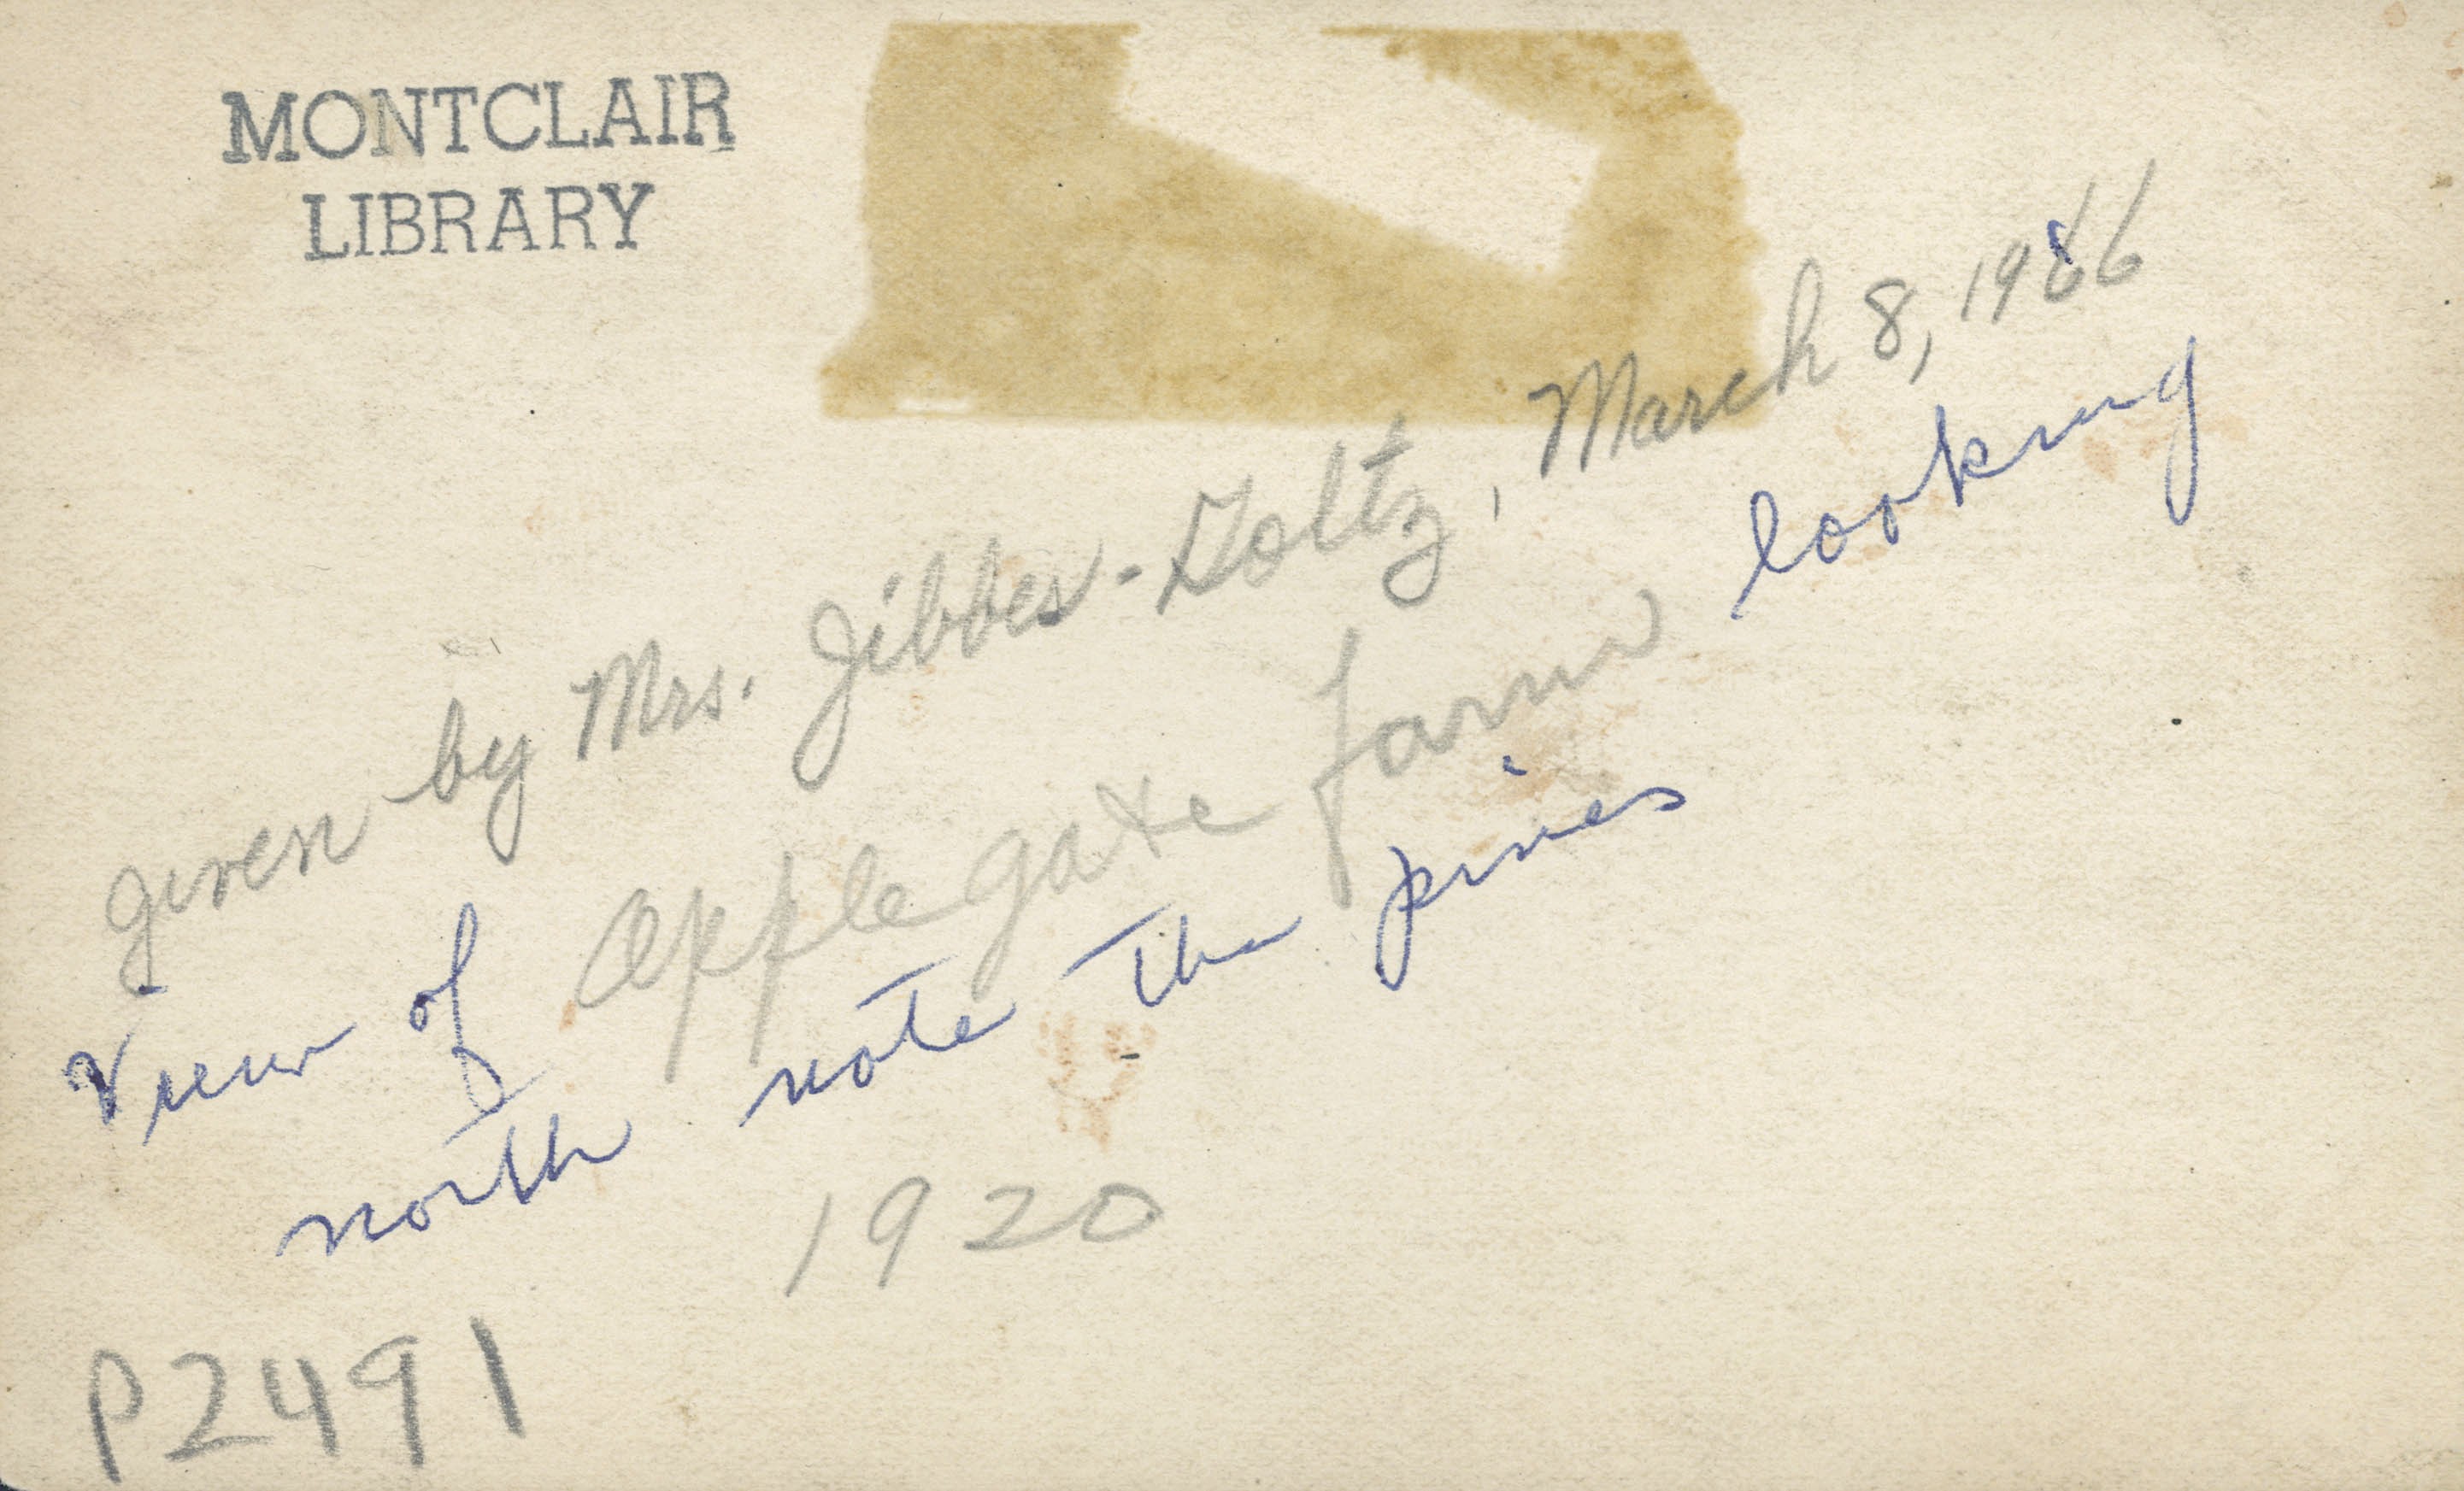 MONTCLAIR
LIBRARY
given by Mrs. Gibbes-Goltz, March 8, 1966
View of Applegate farm looking
north note the pines
1920
P2491